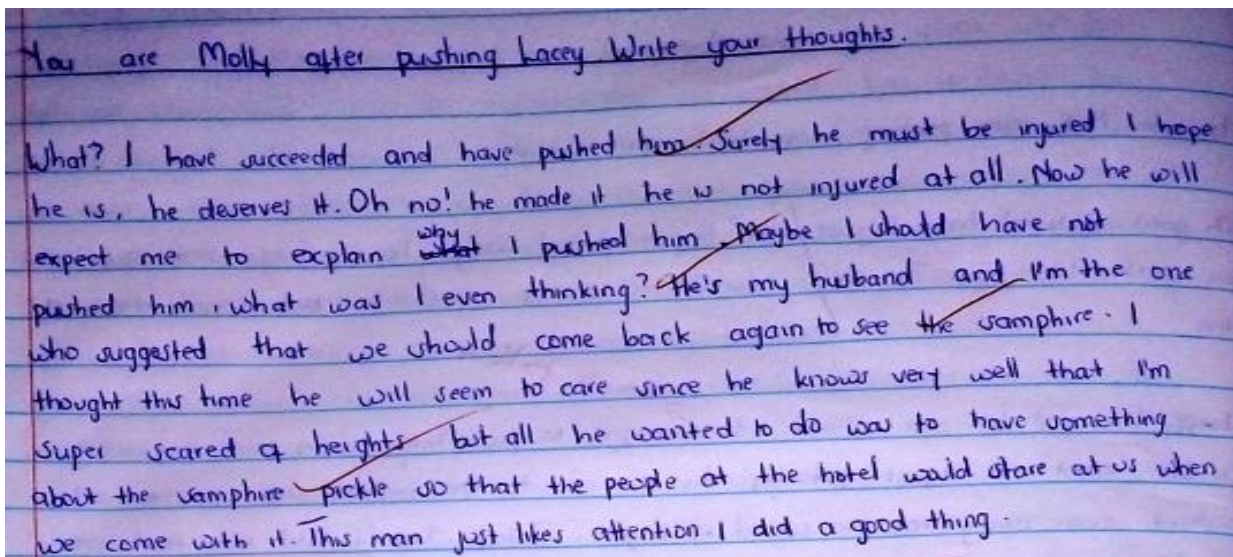 You are Molly after pushing Lacey Write your thoughts.
What? I have succeeded and have pushed him. Surely he must be injured I hope
he is, he deserves it. Oh no! he made it he is not injured at all. Now he will
expect me to explain why I pushed him. Maybe I should have not
pushed him, what was I even thinking? He's my husband and I'm the one
who suggested that we should come back again to see the samphire. I
thought this time he will seem to care since he knows very well that I'm
super scared of heights but all he wanted to do was to have something
about the samphire pickle so that the people at the hotel would stare at us when
we come with it. This man just likes attention I did a good thing.